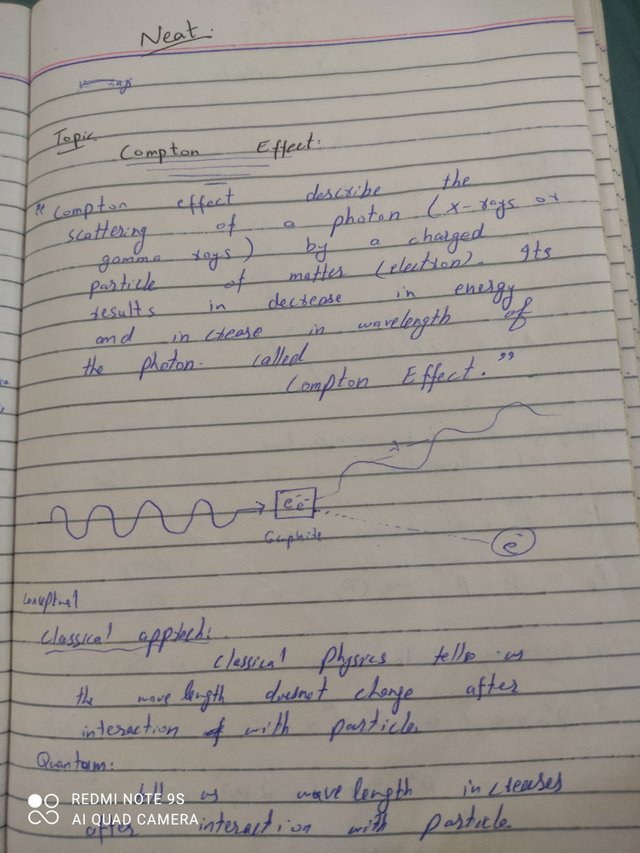 Neat.
Topic
Compton Effect:
"Compton effect describe the
scattering of a photon (x-rays or
gamma rays) by a charged
particle of matter (electron). Its
results in decrease in energy
and in crease in wavelength of
the photon. called
Compton Effect."
e⁻e⁻
Graphite
e⁻
Conceptual
Classical
Classical Physics tells us
the wave length doesnot change after
interaction with particle.
Quantum:
us wave length increases
after interaction with particle
REDMI NOTE 9S
AI QUAD CAMERA